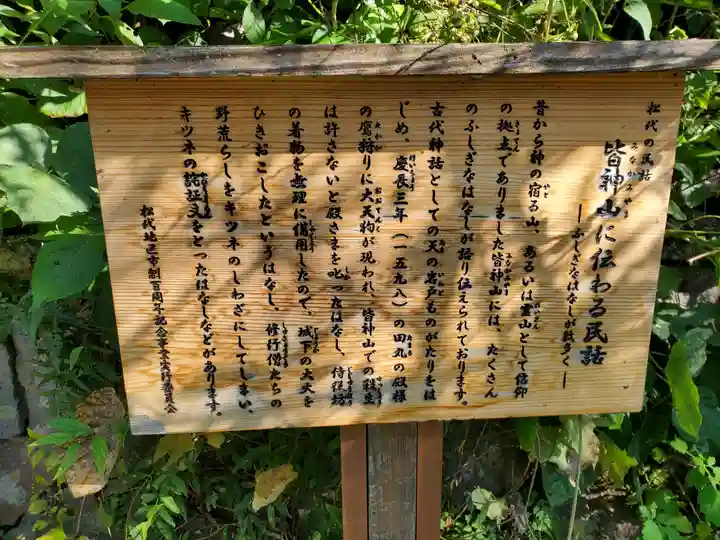 松代の民話
皆神山に伝わる民話
―ふしぎなはなしが数多く―
昔から神の宿る山、あるいは霊山として信仰
の拠点でありました皆神山には、たくさん
のふしぎなはなしが語り伝えられております。
古代神話としての天の岩戸ものがたりをは
じめ、慶長三年（一五九八）の田丸の殿様
の鷹狩りに大天狗が現われ、皆神山での殺生
は許さないと殿さまを叱ったはなし、侍従坊
の着物を無理に借用したので、城下の大火を
ひきおこしたというはなし、修行僧たちの
野荒らしをキツネのしわざにしてしまい、
キツネの詫証文をとったはなしなどがあります。
松代地区市制百周年記念事業実行委員会